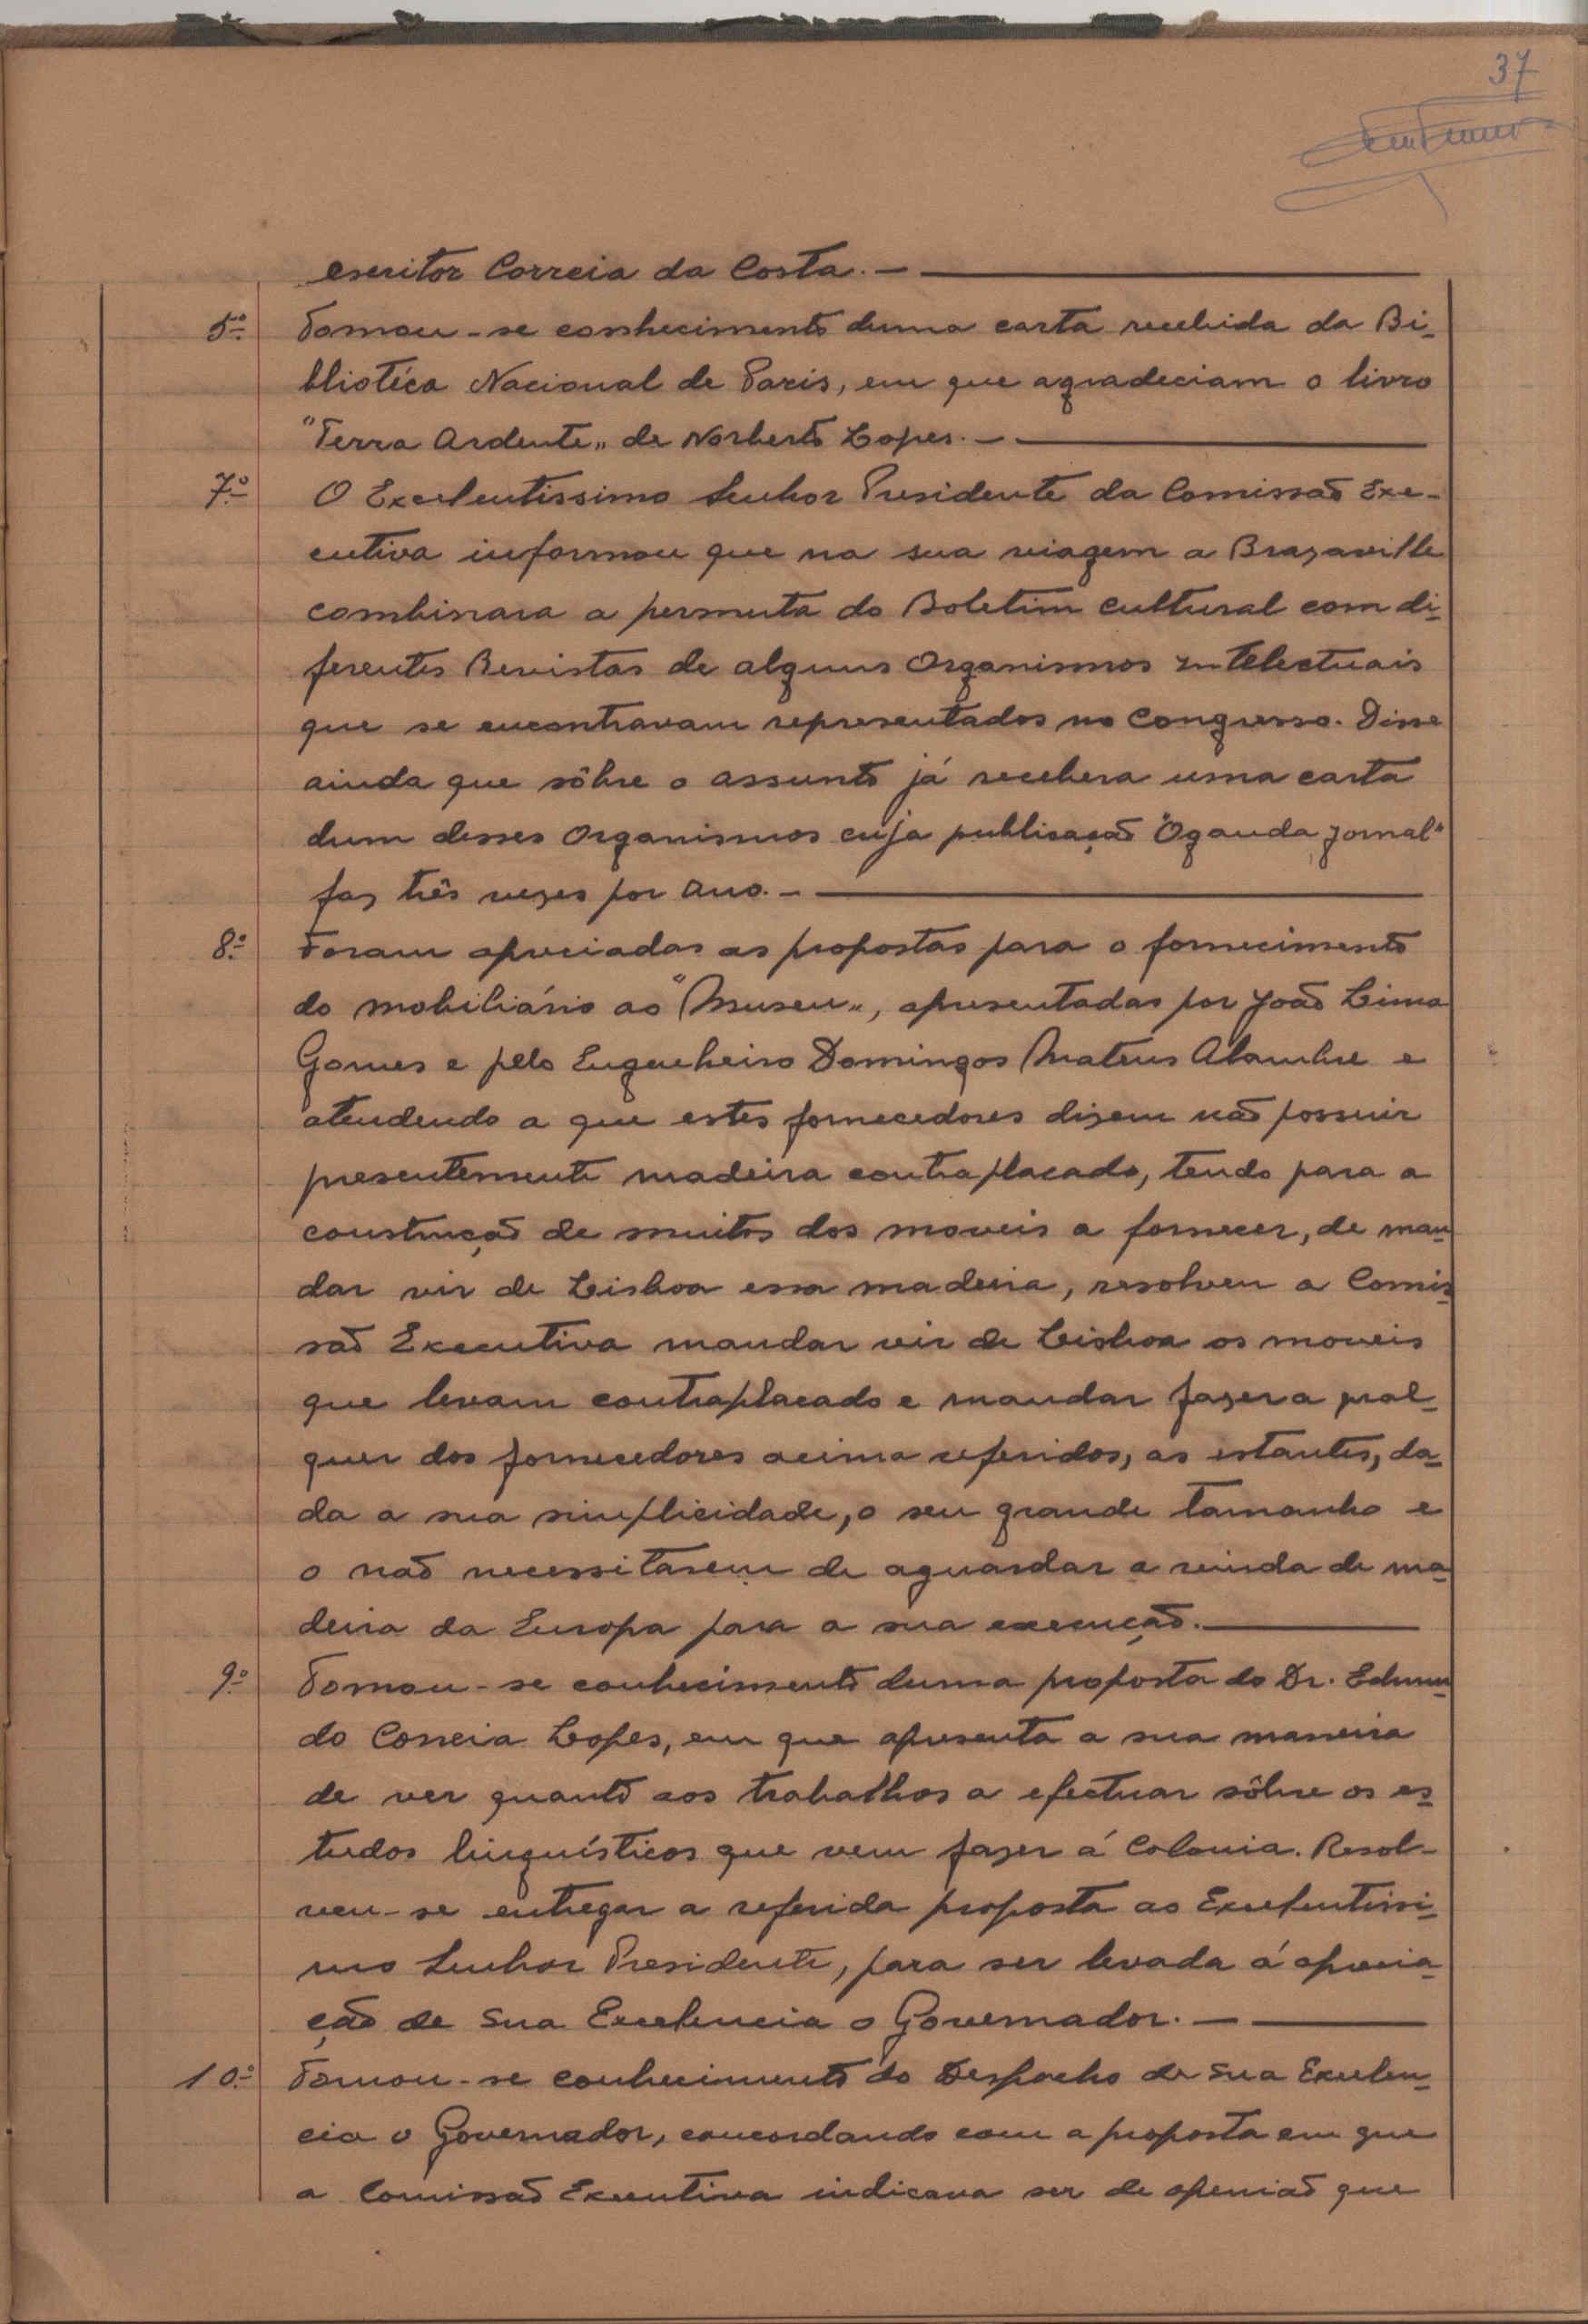 37
escritor Correia da Costa. —
5.º Tomou-se conhecimento duma carta recebida da Bi-
bliotéca Nacional de Paris, em que agradeciam o livro
"Terra Ardente" de Norberto Lopes. —
7.º O Excelentissimo Senhor Presidente da Comissão Exe-
cutiva informou que na sua viagem a Brazaville
combinara a permuta do Boletim Cultural com di-
ferentes Revistas de alguns Organismos Intelectuais
que se encontravam representados no Congresso. Disse
ainda que sôbre o assunto já recebera uma carta
dum desses Organismos cuja publicação "Oganda Jornal"
faz três vezes por ano. —
8.º Foram apreciadas as propostas para o fornecimento
do mobiliário ao "Museu", apresentadas por João Lima
Gomes e pelo Engenheiro Domingos Mateus Alambre e
atendendo a que estes fornecedores dizem não possuir
presentemente madeira contraplacado, tendo para a
construção de muitos dos moveis a fornecer, de man-
dar vir de Lisboa essa madeira, resolveu a Comis-
são Executiva mandar vir de Lisboa os moveis
que levam contraplacado e mandar fazer a qual-
quer dos fornecedores acima referidos, as estantes, da-
da a sua simplicidade, o seu grande tamanho e
o não necessitarem de aguardar a vinda de ma-
deira da Europa para a sua execução. —
9.º Tomou-se conhecimento duma proposta do Dr. Edmun-
do Correia Lopes, em que apresenta a sua maneira
de ver quanto aos trabalhos a efectuar sôbre os es-
tudos linguísticos que vem fazer á Colonia. Resol-
veu-se entregar a referida proposta ao Excelentissi-
mo Senhor Presidente, para ser levada á aprecia-
ção de Sua Excelencia o Governador. —
10.º Tomou-se conhecimento do Despacho de Sua Excelen-
cia o Governador, concordando com a proposta em que
a Comissão Executiva indicava ser de openião que